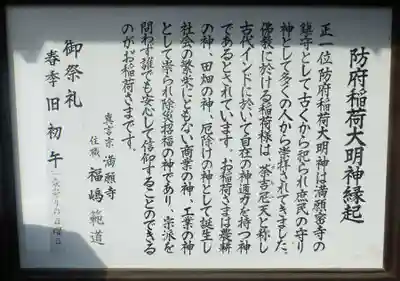 防府稲荷大明神縁起
正一位防府稲荷大明神は満願密寺の
鎮守として古くから祀られ庶民の守り
神として多くの人から崇拝されてきました。
佛教に於ける稲荷様は"茶吉尼天"と称し
古代インドに於いて自在の神通力を持つ神
であるとされています。お稲荷さまは農耕
の神、田畑の神、厄除けの神として誕生し
社会の繁栄にともない商業の神、工業の神
として崇られ除災招福の神であり、宗派を
問わず誰でも安心して信仰することのできる
のがお稲荷さまです。
真言宗 満願寺
住職 福嶋範道
御祭礼
春季 旧初午